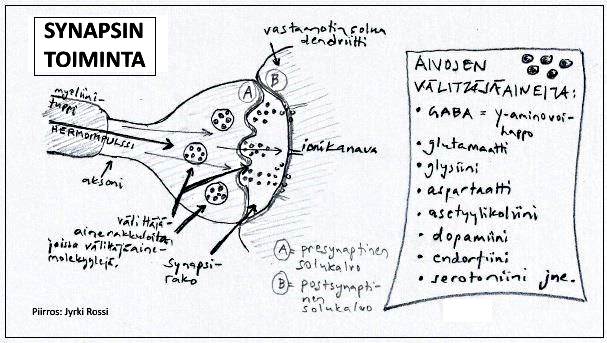 SYNAPSIN
TOIMINTA
vastaanottin solun
dendriitti
myeliini-
tuppi
HERMOIMPULSSI
aksoni
A
B
ionikanava
välittäjä-
ainerakkuloita,
joissa välittäjäaine-
molekyylejä.
synapsi-
rako
A = presynaptinen
solukalvo
B = postsynapti-
nen
solukalvo
AIVOJEN
VÄLITTÄJÄAINEITA:
• GABA = γ-aminovoi-
happo
• glutamaatti
• glysiini
• aspartaatti
• asetyylikoliini
• dopamiini
• endorfiini
• serotoniini jne.
Piirros: Jyrki Rossi